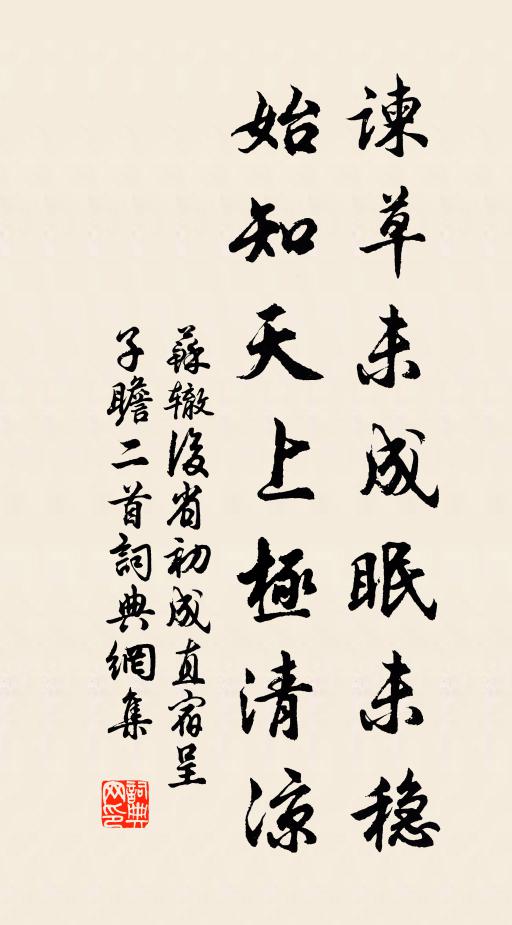 諫草未成眠未穩
始知天上極清涼
蘇轍後省初成直宿呈
子瞻二首詞典網集
詞典网印